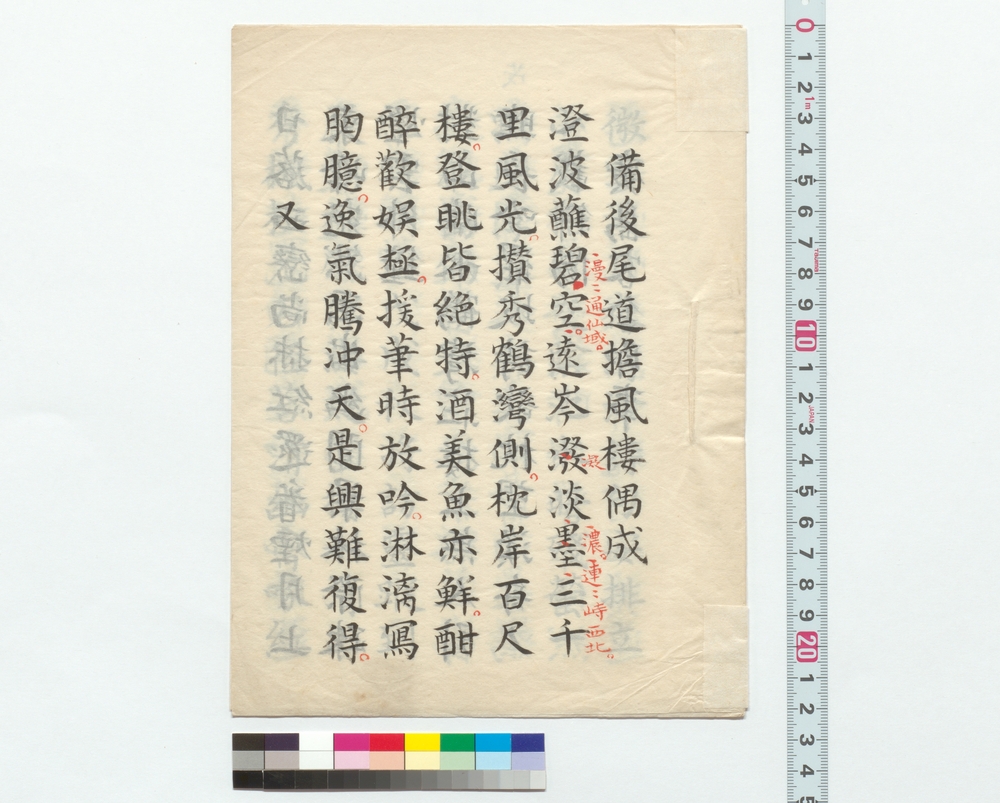 備後尾道擔風樓偶成
澄波蘸碧空。遠岑潑淡墨三千
漫〻通仙域。
凝
濃。連〻峙西北。
里風光。攅秀鶴灣側。枕岸百尺
樓。登眺皆絶特。酒美魚亦鮮。酣
醉歡娯極。援筆時放吟。淋漓冩
胸臆。逸氣騰冲天。是興難復得。
又